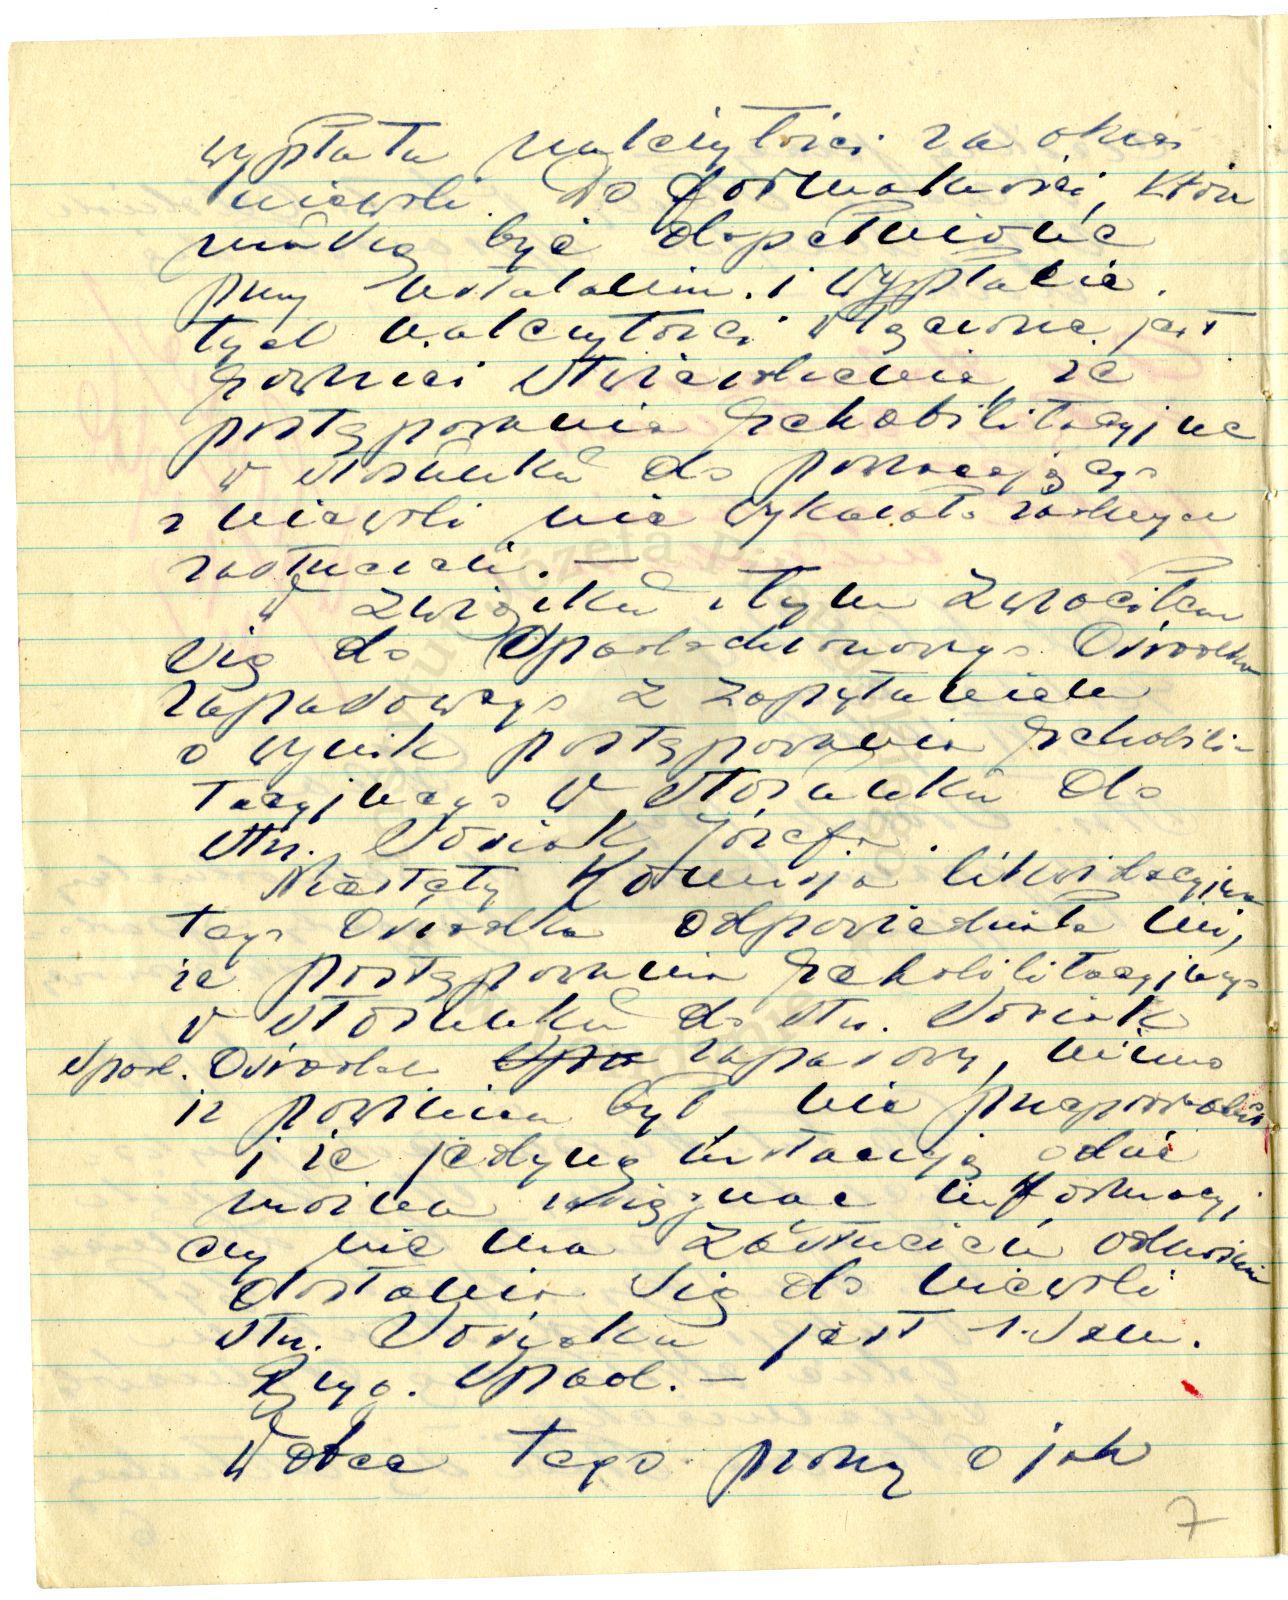 wypłata należytości za okres
niewoli. Do formalności, które
muszą być dopełnione
przy ustaleniu i wypłacie
tych należytości włączone jest
również stwierdzenie, że
postępowanie rehabilitacyjne
w stosunku do powracającego
z niewoli nie wykazało żadnych
zastrzeżeń. —
W związku z tym zwróciłem
się do Spadochronowego Ośrodka
zapasowego z zapytaniem
o wynik postępowania rehabili-
tacyjnego w stosunku do
str. Sosiak Józefa.
Niestety Komisja likwidacyjna
tego Ośrodka odpowiedziała mi,
że postępowania rehabilitacyjnego
w stosunku do str. Sosiak
Spad. Ośrodek zapasowy, mimo
iż powinien był, nie przeprowadził
i że jedyną instancją gdzie
można zasięgnąć informacji
czy nie ma zastrzeżeń odnośnie
dostania się do niewoli
str. Sosiaka jest 1. Sam.
Bryg. Spad. —
Wobec tego proszę o jak
7